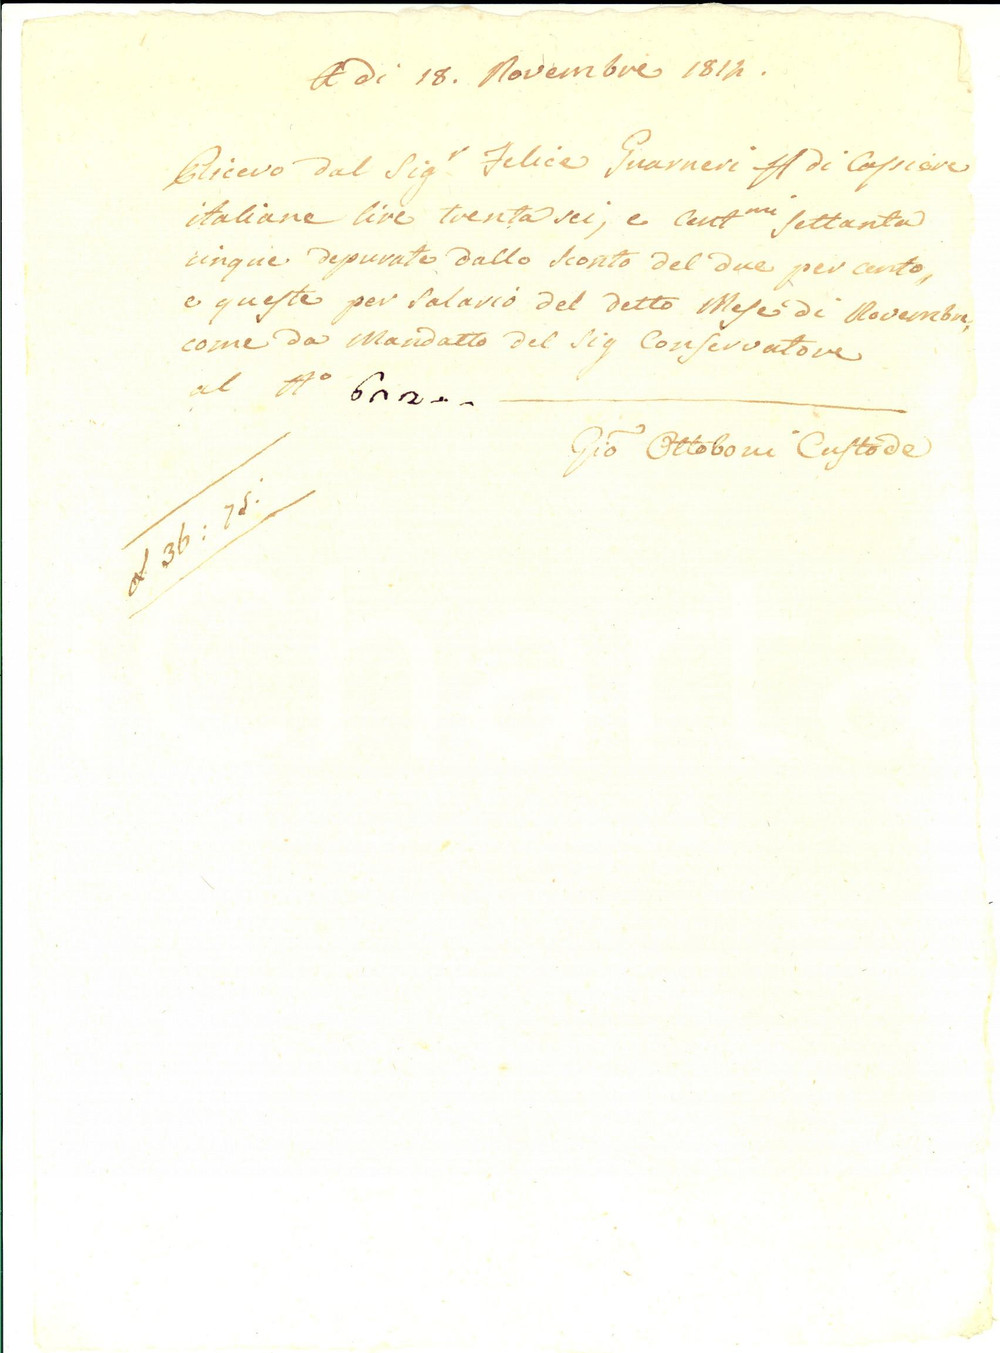 A di 18. Novembre 1812.
Ricevo dal Sigr Felice Guarneri ff di Cassiere
italiane lire trenta sei, e Centmi settanta
cinque depurate dallo sconto del due per cento,
e queste per salario del detto Mese di Novembre,
come da Mandatto del Sig Conservatore
al No
Gio Ottoboni Custode
36:75.
Charta